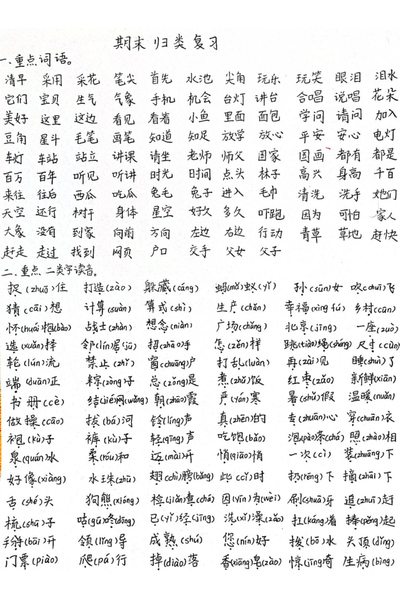 期末归类复习
一.重点词语。
清早 采用 采花 笔尖 首先 水池 尖角 玩乐 玩笑 眼泪 泪水
它们 宝贝 生气 气象 手机 机会 台灯 讲台 合唱 说唱 花朵
美好 这里 这边 看见 看着 小鱼 里面 面包 学问 请问 加入
豆角 星斗 毛笔 画笔 知道 知足 放学 放心 平安 安心 电灯
车灯 车站 站立 讲课 请坐 老师 师父 国家 国画 都有 都是
百万 百年 听见 听讲 时光 时间 点头 林子 高兴 身高 千百
来往 往后 西瓜 吃瓜 兔毛 兔子 进入 毛巾 清洗 洗手 她们
天空 还行 树干 身体 星空 好久 多久 吓跑 因为 可怕 家人
大象 没有 到家 向前 方向 左边 右边 行动 青草 草地 赶快
赶走 走过 找到 网页 户口 交手 父女 父子
二.重点二类字读音。
捉(zhuō)住 打造(zào) 躲藏(cáng) 蚂(mǎ)蚁(yǐ) 孙(sūn)女 吹(chuī)飞
猜(cāi)想 计算(suàn) 算式(shì) 生产(chǎn) 幸福(xìng fú) 乡村(cūn)
怀(huái)抱(bào) 战士(zhàn) 想念(niàn) 广场(chǎng) 北京(jīng) 一座(zuò)
选(xuǎn)择 邻(lín)居(jū) 招(zhāo)手 怎(zěn)样 跳(tiào)绳(shéng) 尺寸(cùn)
轮(lún)流 禁止(zhǐ) 窗(chuāng)户 打乱(luàn) 再(zài)见 睡(shuì)了
端(duān)正 粽(zòng)子 总(zǒng)是 煮(zhǔ)饭 红枣(zǎo) 新鲜(xiān)
书册(cè) 结(jié)网(wǎng) 朝(zhāo)霞 严(yán)寒 暑(shǔ)假 温暖(nuǎn)
做操(cāo) 拔(bá)河 铃(líng)声 真(zhēn)的 专(zhuān)心 穿(chuān)衣
裙(qún)子 裤(kù)子 轻(qīng)声 吃饱(bǎo) 泡(pào)茶(chá) 照(zhào)相
泉(quán)水 柔(róu)和 迈(mài)开 悄(qiāo)悄 一次(cì) 装(zhuāng)下
好像(xiàng) 水珠(zhū) 翅(chì)膀(bǎng) 此(cǐ)时 扔(rēng)下 摘(zhāi)下
舌(shé)头 狗熊(xióng) 检(jiǎn)查(chá) 因(yīn)为(wèi) 刷(shuā)牙 追(zhuī)赶
梳(shū)子 咕(gū)咚(dōng) 已(yǐ)经(jīng) 洗(xǐ)澡(zǎo) 扛(káng)着 捧(pěng)起
掰(bāi)开 领(lǐng)导 成熟(shú) 您(nín)好 拨(bō)水 头顶(dǐng)
门票(piào) 爬(pá)行 掉(diào)落 香(xiāng)皂(zào) 惊(jīng)奇 生病(bìng)